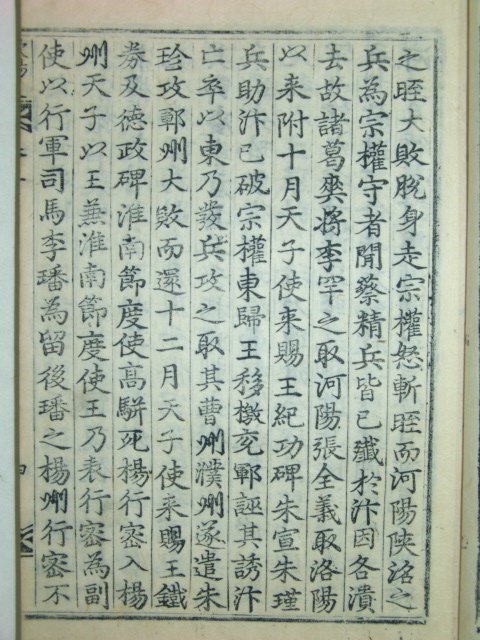 之晊大敗脫身走宗權怒斬晊而河陽陝洛之
兵為宗權守者聞蔡精兵皆已殲於汴因各潰
去故諸葛爽將李罕之取河陽張全義取洛陽
以来附十月天子使来賜王紀功碑朱宣朱瑾
兵助汴已破宗權東歸王移檄兖鄆誣其誘汴
亡卒以東乃發兵攻之取其曹州濮州遂遣朱
珍攻鄆州大敗而還十二月天子使来賜王鐵
券及德政碑淮南節度使高駢死楊行密入楊
州天子以王兼淮南節度使王乃表行密為副
使以行軍司馬李璠為留後璠之楊州行密不
四